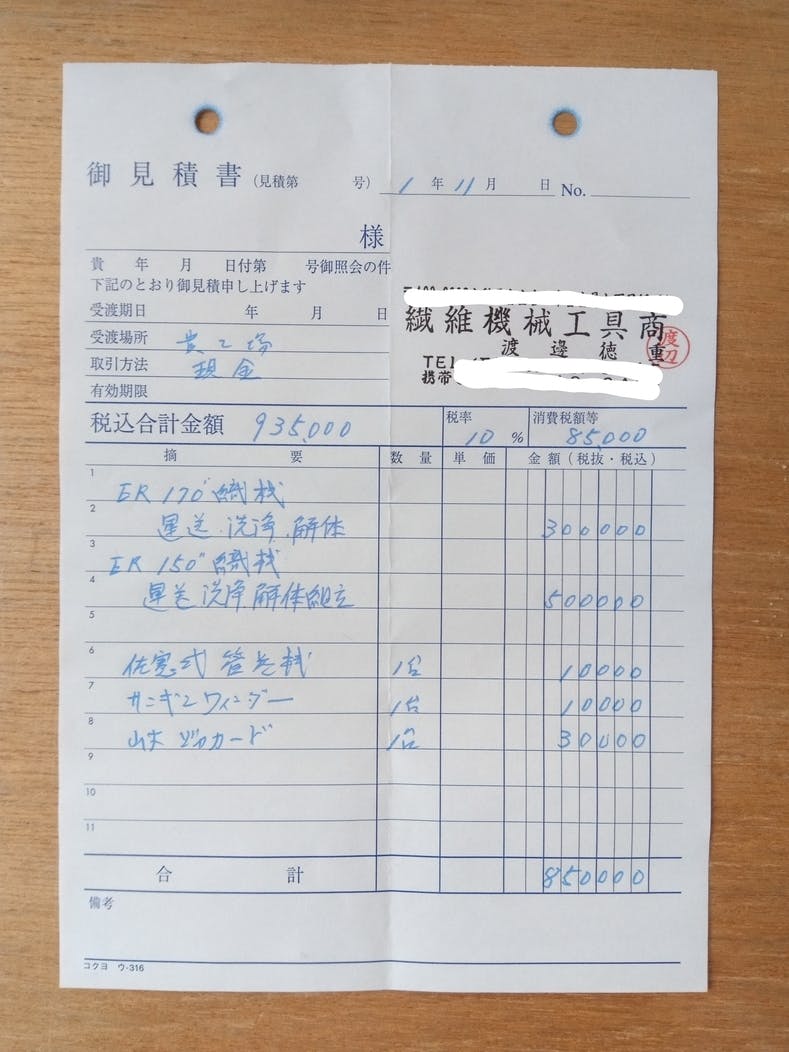 御見積書(見積第 号) 1年11月 日 No.
様
貴 年 月 日付第 号御照会の件
下記のとおり御見積申し上げます
受渡期日 年 月 日
受渡場所 貴工場
取引方法 現金
有効期限
繊維機械工具商
渡邊徳重
TEL
携帯
税込合計金額 935,000 税率 10% 消費税額等 85,000
摘要 数量 単価 金額(税抜・税込)
1 ER 170" 織機
2 運送.洗浄.解体 300000
3 ER 150" 織機
4 運送 洗浄.解体組立 500000
5
6 管巻機 1台 10000
7 ワインダー 1台 10000
8 山木 ジャカード 1台 30000
9
10
11
合計 850000
備考
コクヨ ウ-316